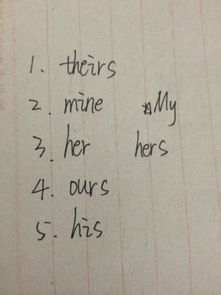 1. theirs
2. mine My
3. her hers
4. ours
5. his